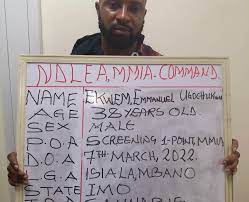 NDLEA, MMIA-COMMAND.
NAME EKWEM, EMMANUEL UGOCHUKWU
AGE 38 YEARS OLD.
SEX MALE
P.O.A SCREENING 1-POINT, MMIA
D.O.A 7TH MARCH, 2022.
L.G.A ISIALAMBANO
STATE IMO